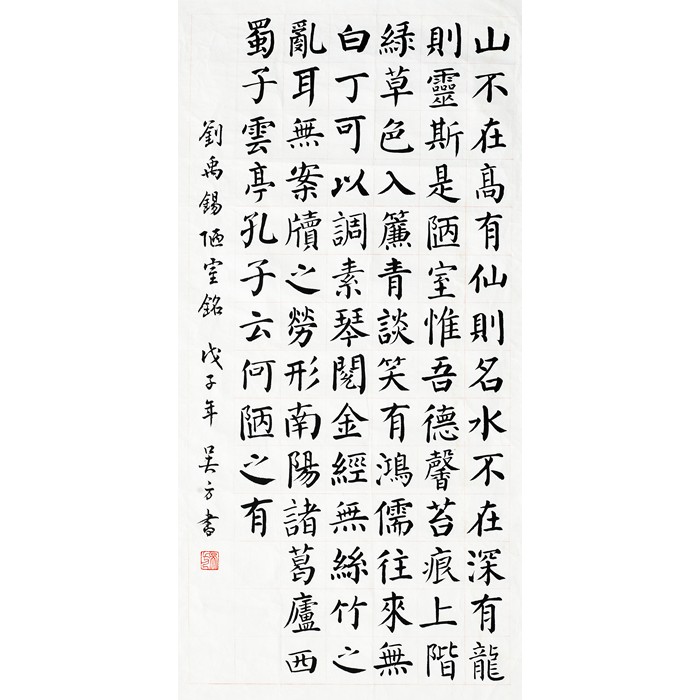 山不在髙有仙則名水不在深有龍
則靈斯是陋室惟吾德馨苔痕上階
緑草色入簾青談笑有鴻儒往來無
白丁可以調素琴閱金經無絲竹之
亂耳無案牘之勞形南陽諸葛廬西
蜀子雲亭孔子云何陋之有
劉禹錫陋室銘 戊子年 吴方書